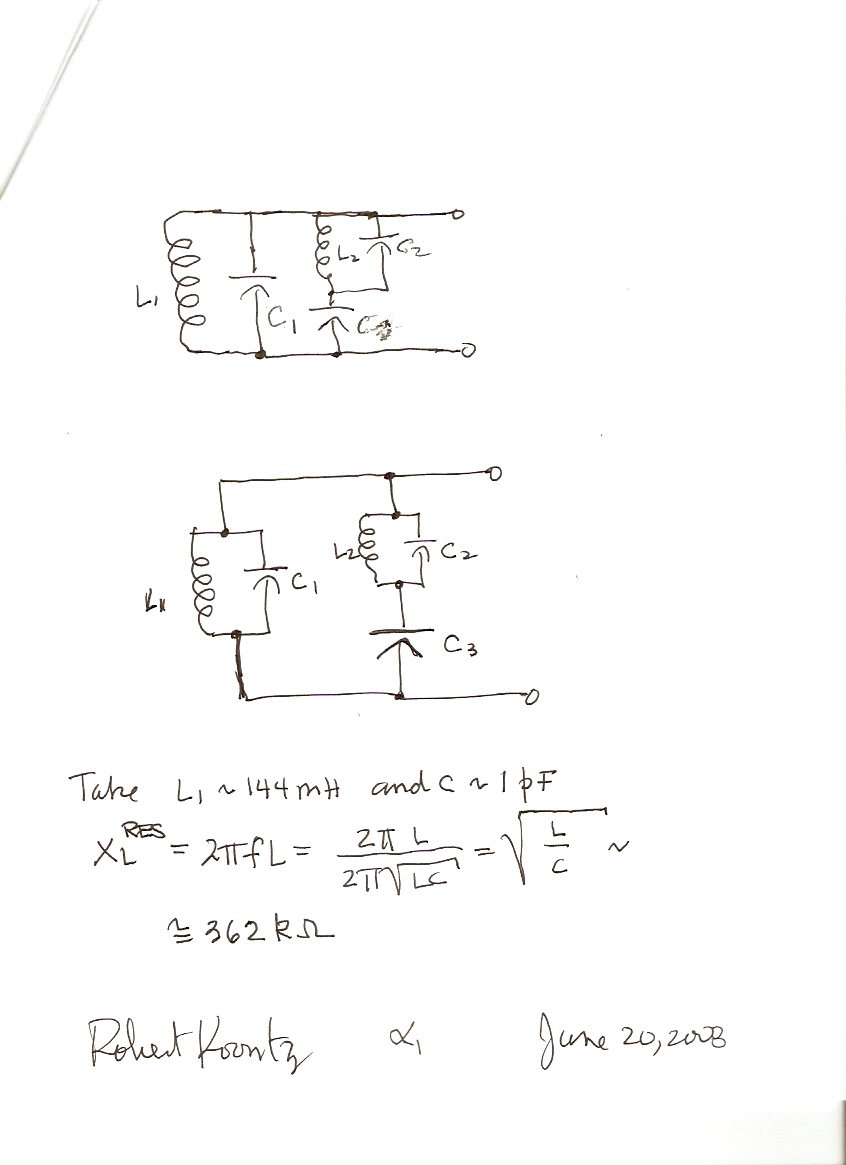 L₁
C₁
L₂
C₂
L₂
C₂
C₁
C₃
Take L₁ ~ 144 mH and C ~ 1 pF
X_L^RES = 2πfL = 2πL / 2π√LC = √(L/C) ~
≅ 362 kΩ
Robert Koontz α₁ June 20, 2008